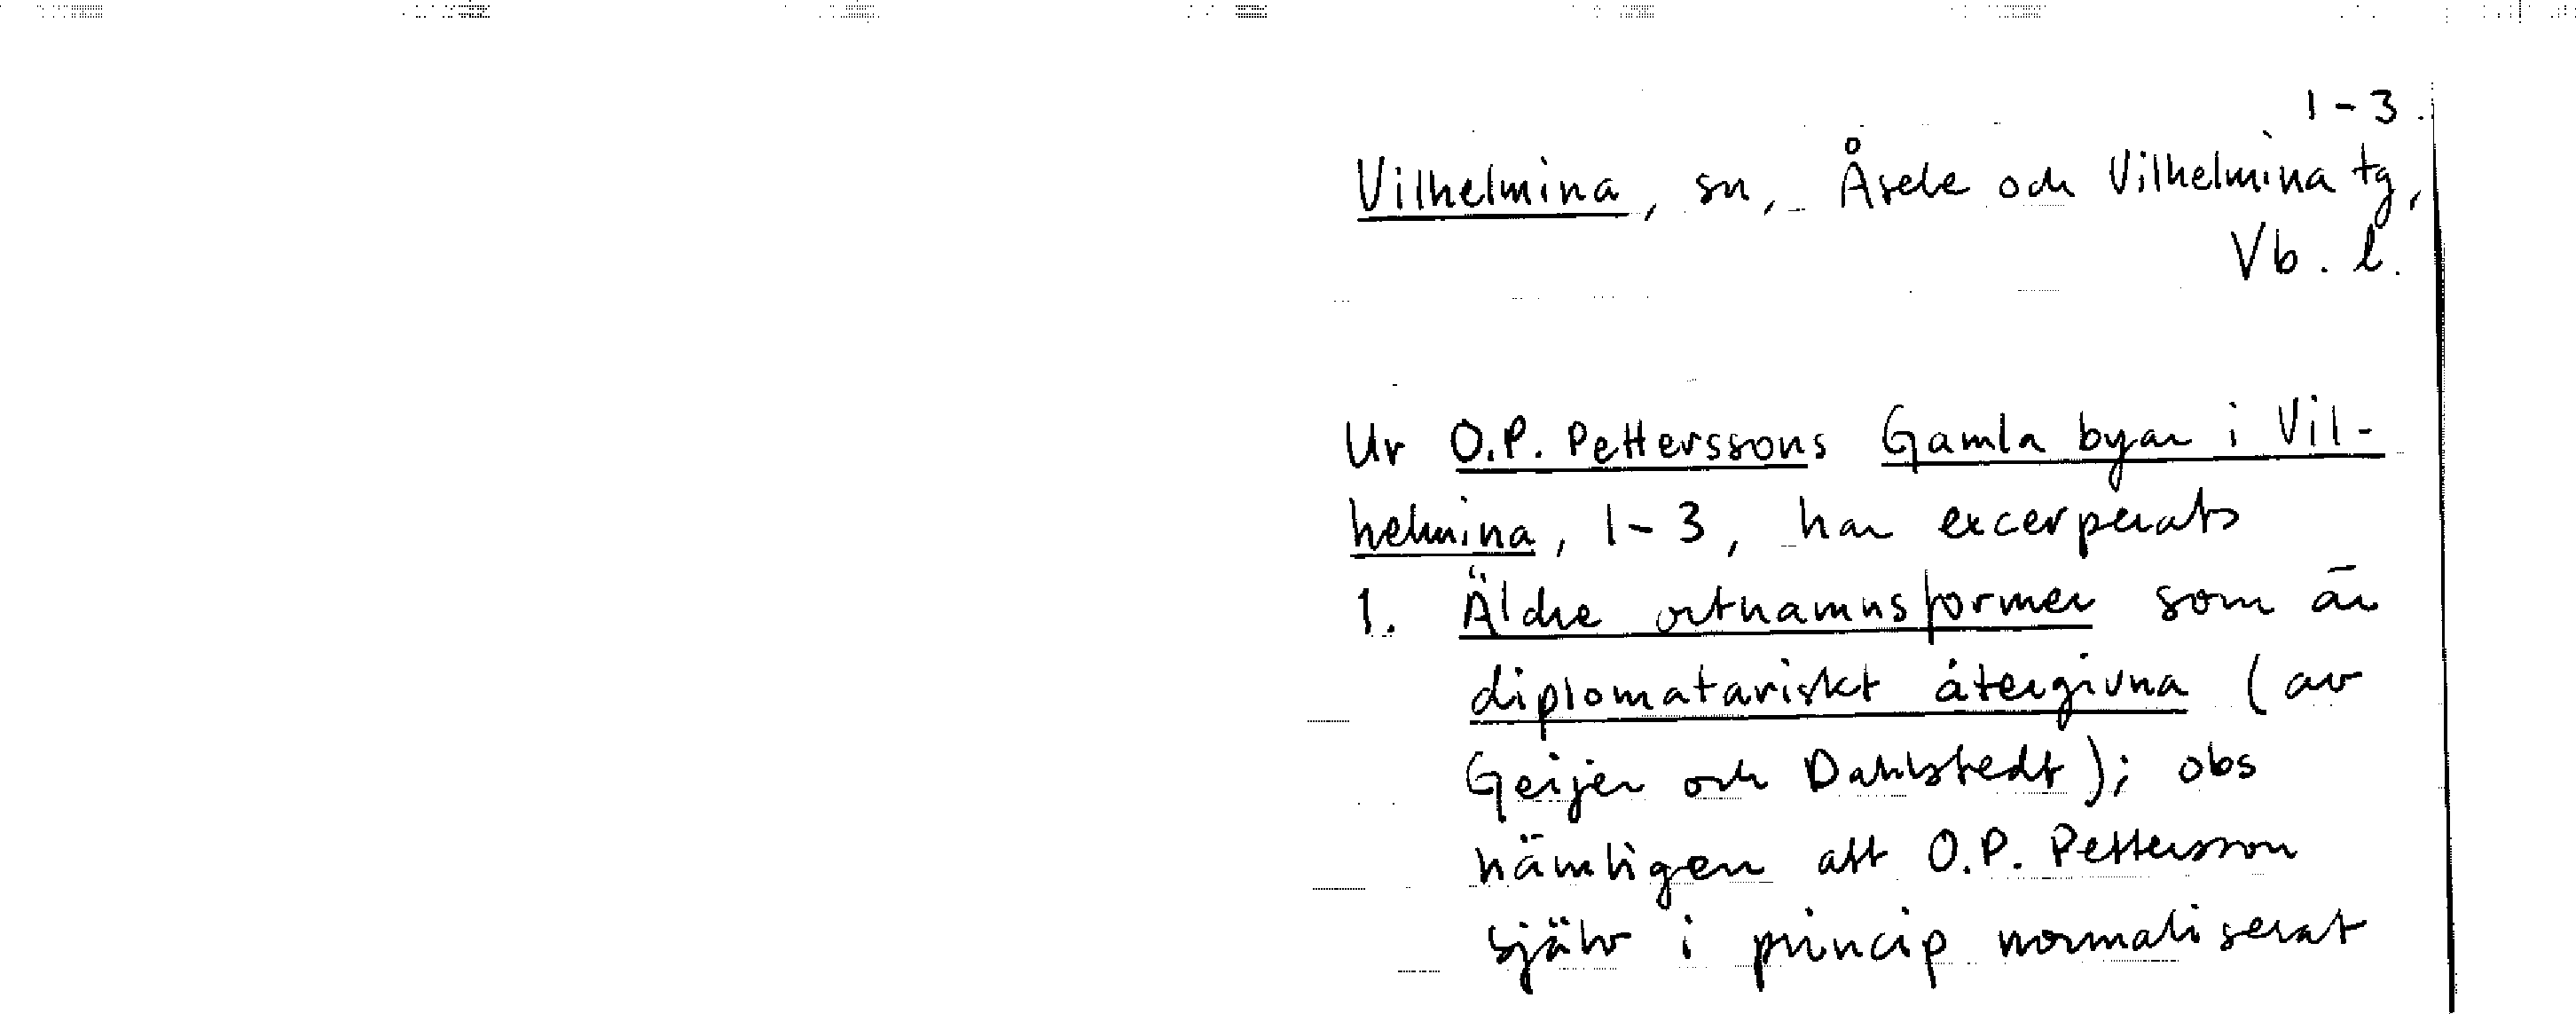 1-3.
Vilhelmina, sn, Åsele och Vilhelmina tg,
Vb. l.
Ur O.P. Petterssons Gamla byar i Vil-
helmina, 1-3, har excerperats
1. Äldre ortnamnsformer som är
diplomatariskt återgivna (av
Geijer och Dahlstedt); obs
nämligen att O.P. Pettersson
själv i princip normaliserat